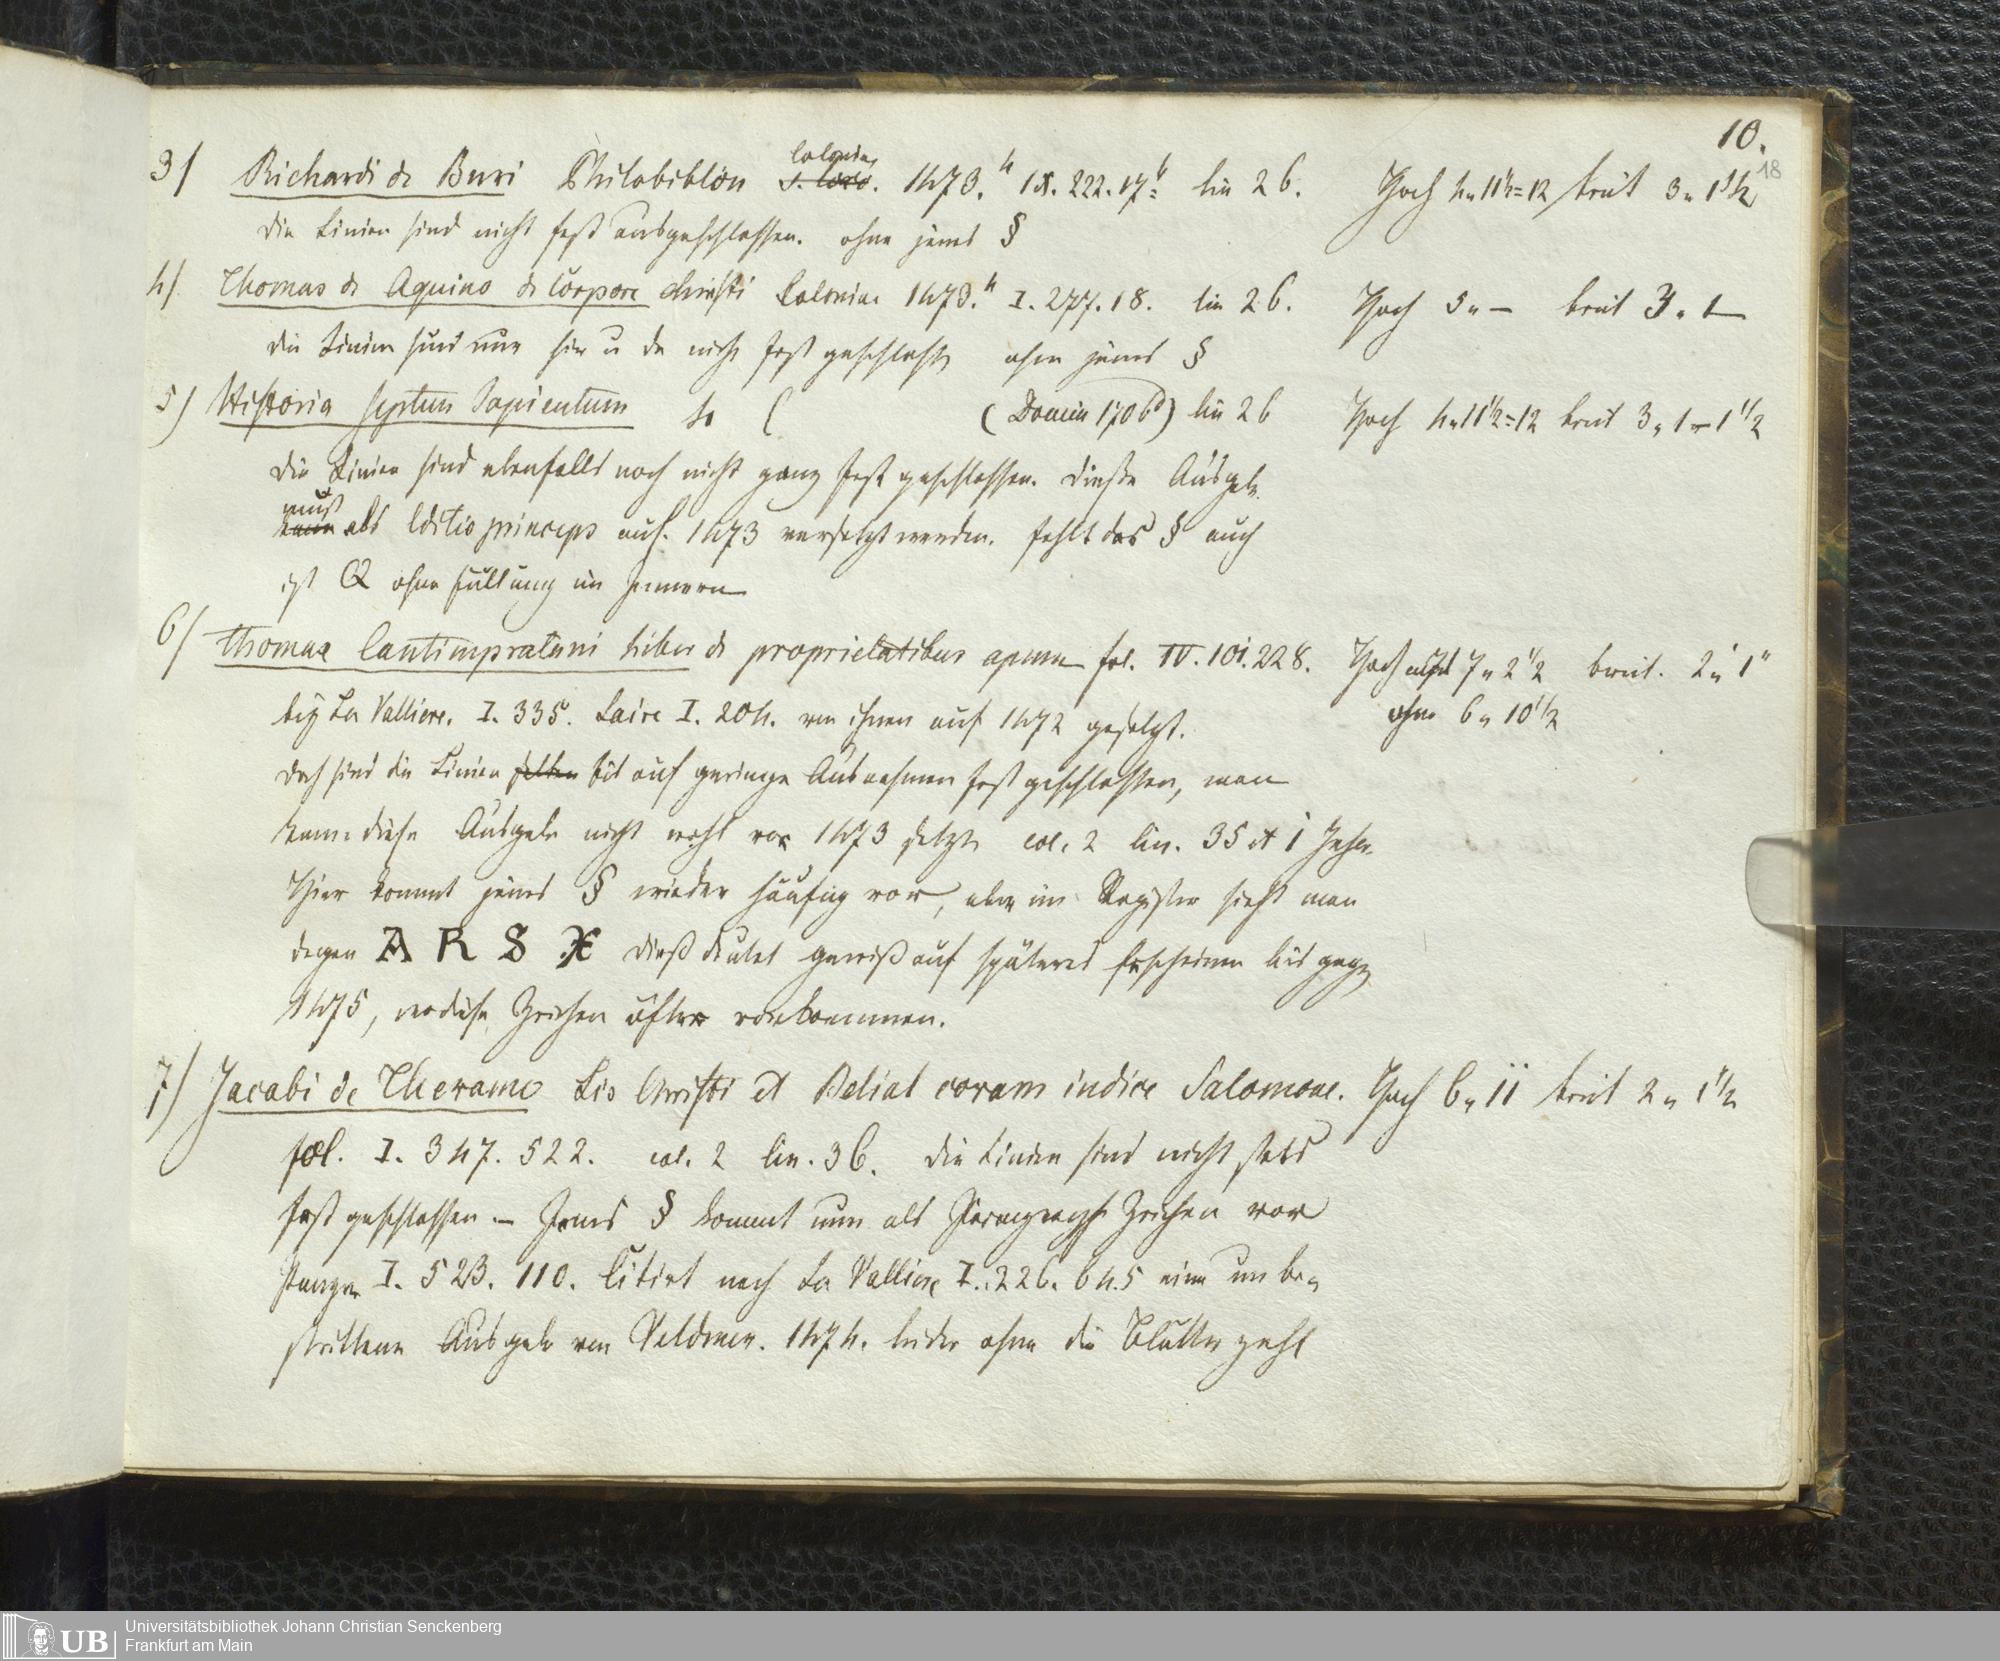 10.
18
3/ Richardi de Buri Philobiblon s. loco. Coloniae 1473. 4 IX. 222. 17. lin 26. Hoch 4„ 11½=12 breit 3„ 1½
die Linien sind nicht fest ausgeschlossen. ohne jenes §
4/ Thomas de Aquino de Corpore Christi Coloniae 1473. 4 I. 277. 18. lin 26. Hoch 5„ – breit 3„ 1
die Linien sind nur hie u da nicht fest geschlossen ohne jenes §
5/ Historia septem Sapientum 4o ( (Domin 1706) lin 26 Hoch 4„ 11½=12 breit 3„ 1–1½
die Linien sind ebenfalls noch nicht ganz fest geschlossen. dieße Ausgabe
kann muß als Editio princeps auf 1473 versetzt werden. fehlt das § auch
ist Q ohne Füllung im Innern
6/ Thomae Cantimpratani Liber de proprietatibus apum fol. IV. 101. 228. Hoch 7„ 2½ breit. 2„ 1
bey La Valliere. I. 335. Laire I. 204. von ihnen auf 1472 gesetzt. ohne 6„ 10½
doch sind die Linien selten bis auf geringe Ausnahmen fest geschlossen, man
kann diese Ausgabe nicht wohl vor 1473 setzen col. 2 lin. 35 et
Hier kommt jenes § wieder häufig vor, aber im Register sieht man
degen A R S X dieß deutet gewiß auf späteres Erscheinen bis gegen
1475, wo diese Zeichen öfter vorkommen.
7/ Jacobi de Theramo Lis Christi et Belial coram iudice Salomone. Hoch 6„ 11 breit 2„ 1½
fol. I. 347. 522. col. 2 lin. 36. die Linien sind nicht stets
fest geschlossen. – Jenes § kommt nun als Paragraph Zeichen vor
Panzer I. 523. 110. Citirt nach La Valliere I. 226. 645 eine unbe„
strittene Ausgabe von Veldener. 1474. leider ohne die Blätterzahl
UB
Universitätsbibliothek Johann Christian Senckenberg
Frankfurt am Main